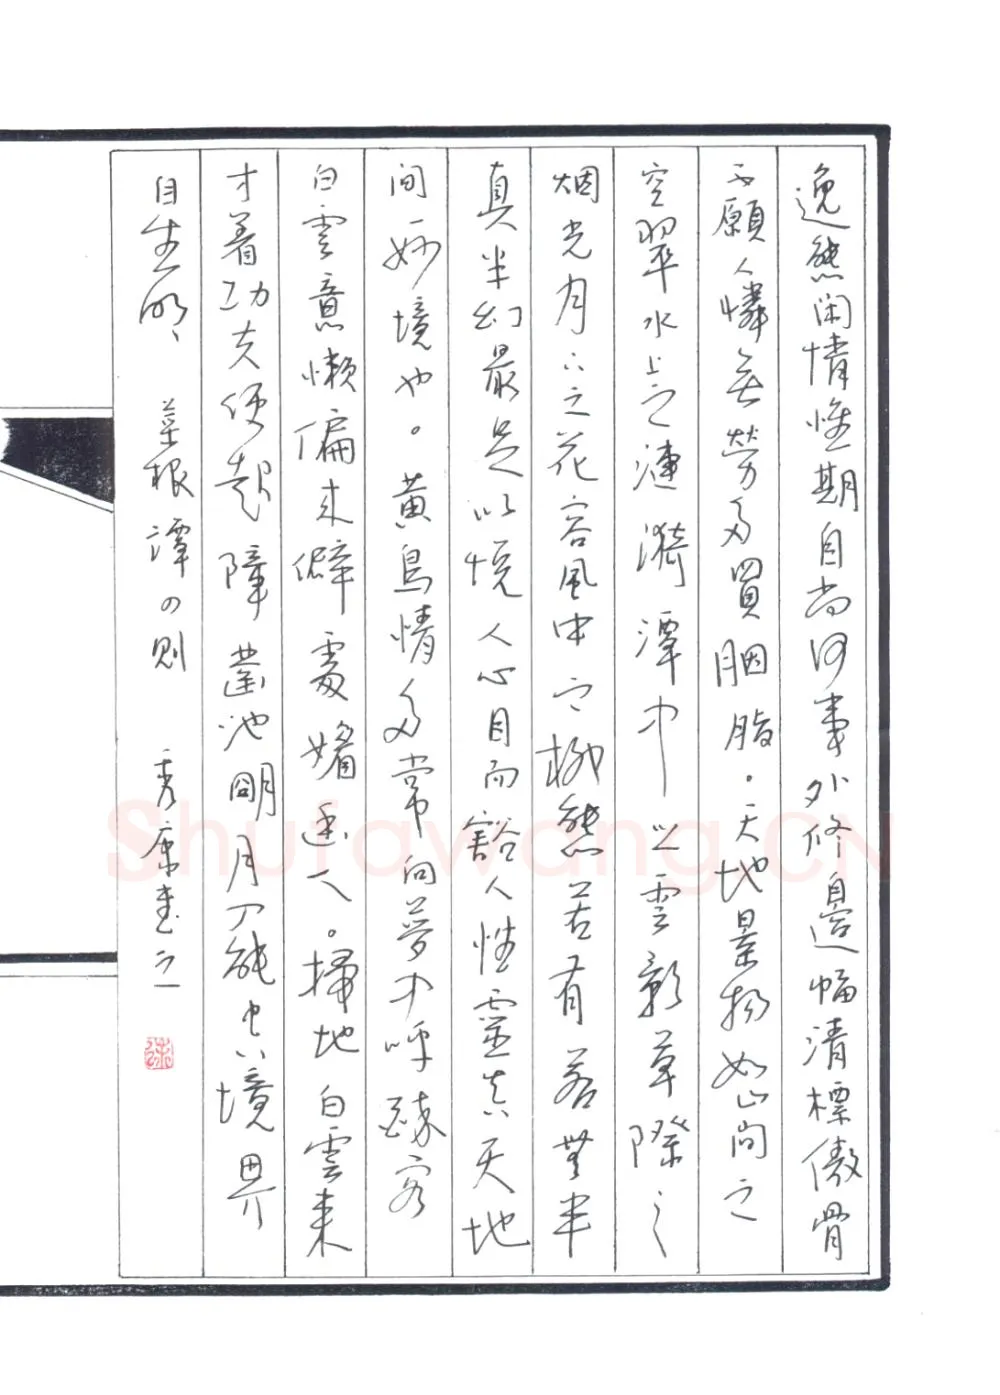 逸態閑情惟期自尚何事外修邊幅清標傲骨
不願人憐無勞多買胭脂。天地景物如山间之
空翠水上之漣漪潭中之雲影草際之
烟光月下之花容風中之柳態若有若無半
真半幻最足以悦人心目而豁人性靈真天地
间一妙境也。黄鳥情多常向夢中呼醉客
白雲意懶偏来僻處媚幽人。掃地白雲来
才着功夫便起障鑿池明月入能空境界
自生明、 菜根譚四則 秀康书之
Shufawang.CN